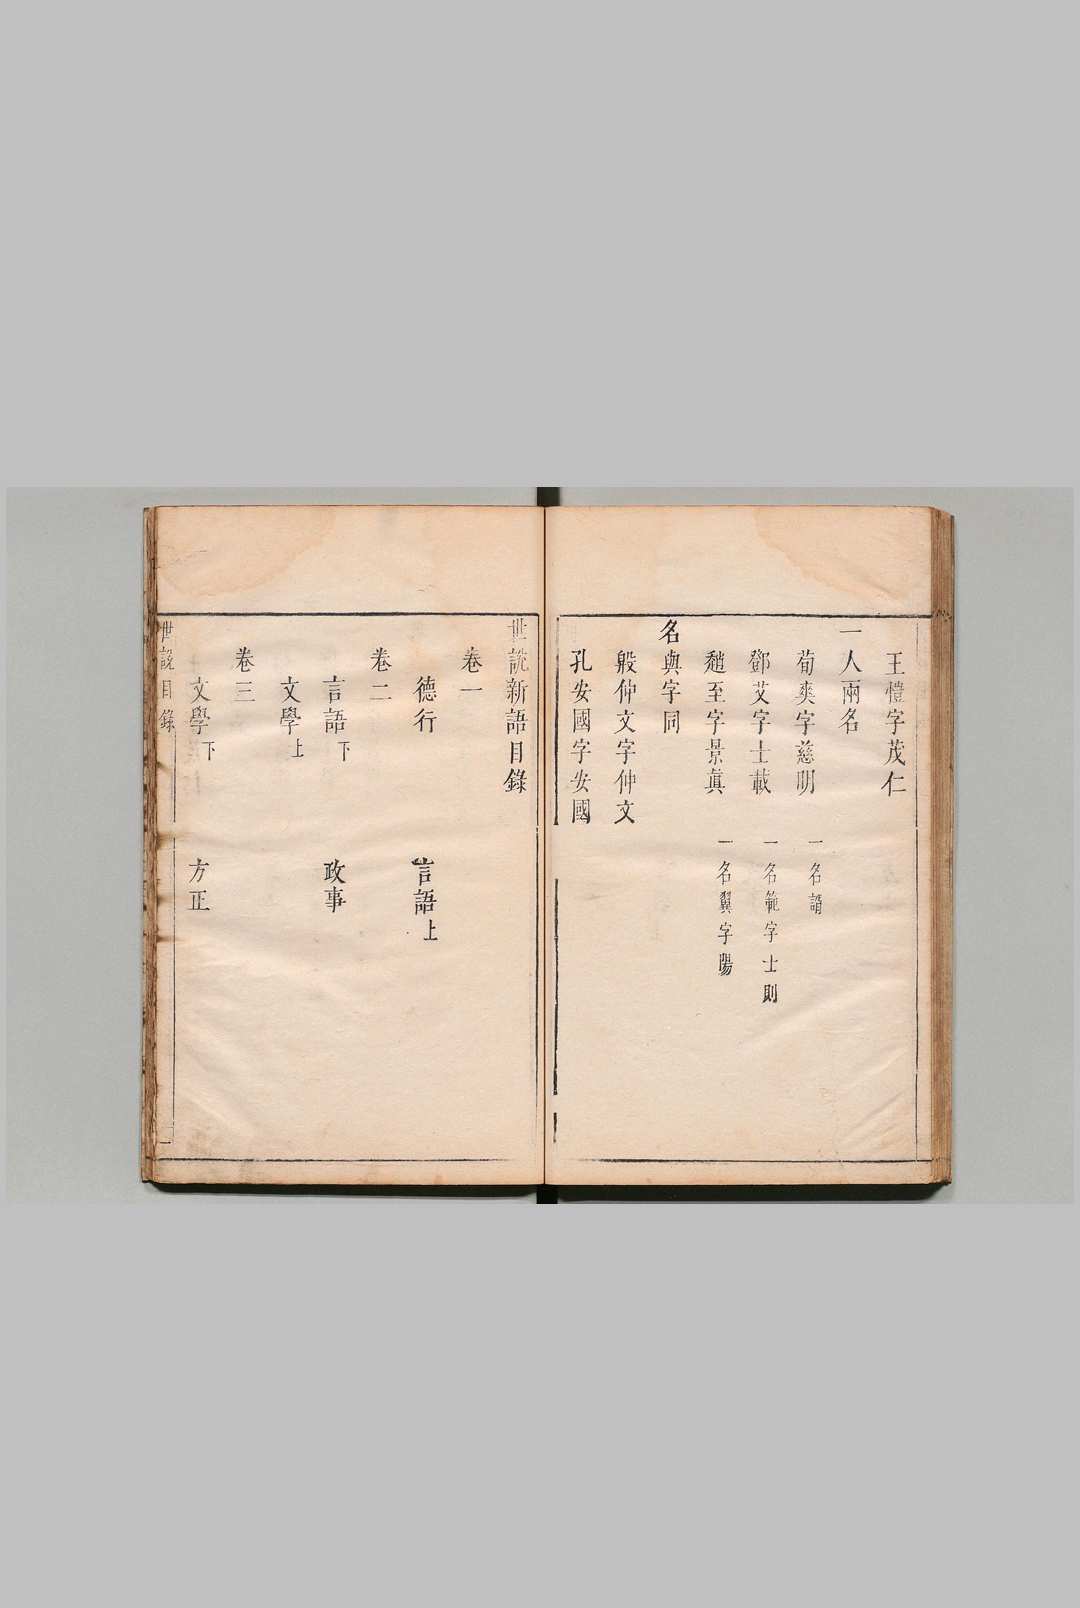 王愷字茂仁
一人兩名
荀爽字慈明 一名諝
鄧艾字士載 一名範字士則
趙至字景眞 一名翼字陽
名與字同
殷仲文字仲文
孔安國字安國
世說新語目錄
卷一
德行 言語上
卷二
言語下 政事
文學上
卷三
文學下 方正
世說目錄 一